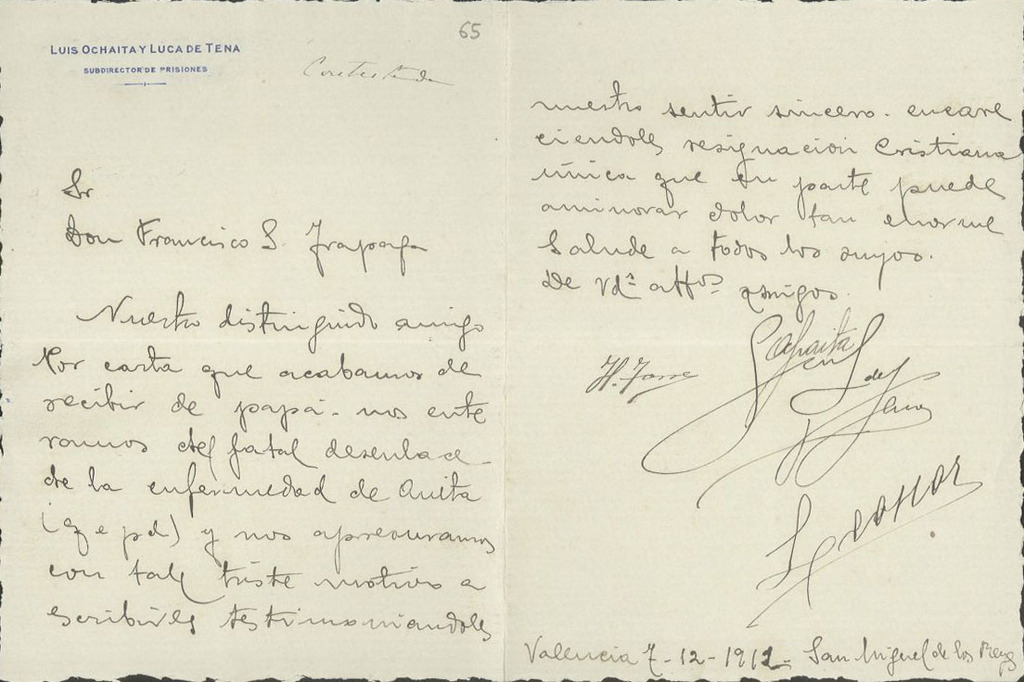 65
LUIS OCHAITA Y LUCA DE TENA
SUBDIRECTOR DE PRISIONES
Contestada
Sr
Don Francisco S.
Nuestro distinguido amigo
Por carta que acabamos de
recibir de papá - nos ente
ramos del fatal desenlace
de la enfermedad de Anita
(q e p d) y nos apresuramos
con tal triste motivo a
escribirles testimoniandoles
nuestro sentir sincero. encare
ciendoles resignacion Cristiana
única que en parte puede
aminorar dolor tan enorme
Salude a todos los suyos.
De Vds affos amigos.
Ochaita
H. Torre
L de Tena
Leonor
Valencia 7-12-1912. San Miguel de los Reyes